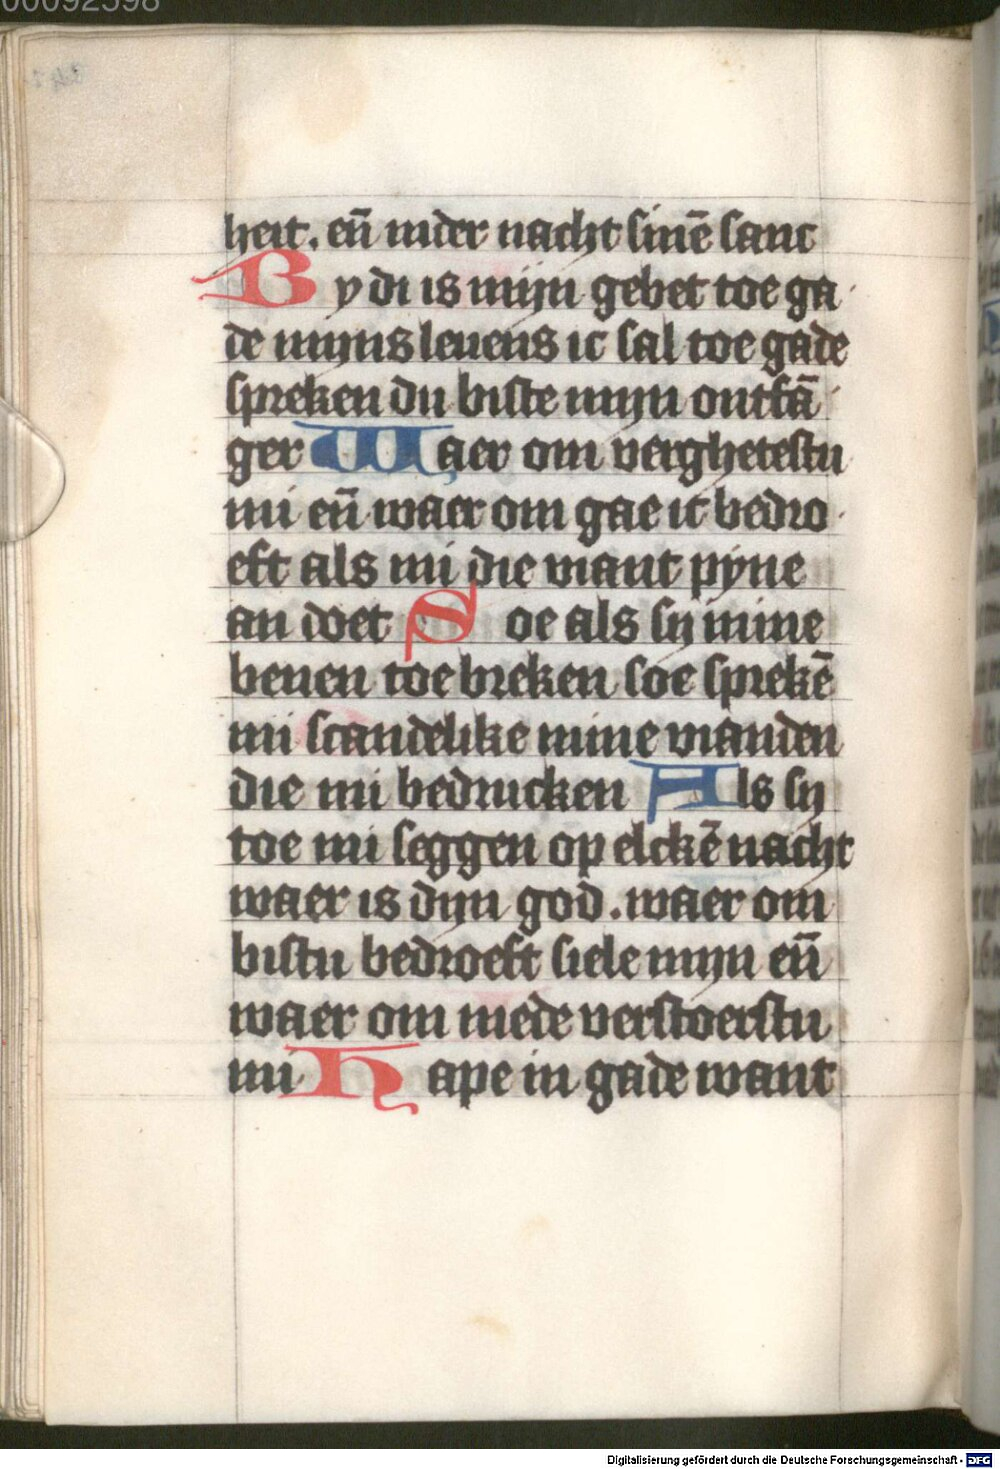 00092598
heit. en̄ inder nacht sinē sanc
By di is mijn gebet toe ga
de mijns leuens ic sal toe gade
spreken du biste mijn ontfā
ger Waer om verghetestu
mi en̄ waer om gae ic bedro
eft als mi die viant pyne
an doet Soe als sij mine
benen toe breken soe sprekē
mi scandelike mine vianden
die mi bedrucken Als sij
toe mi seggen op elckē nacht
waer is dijn god. waer om
bistu bedroeft siele mijn en̄
waer om mede verstoerstu
mi Hape in gade want
Digitalisierung gefördert durch die Deutsche Forschungsgemeinschaft - DFG